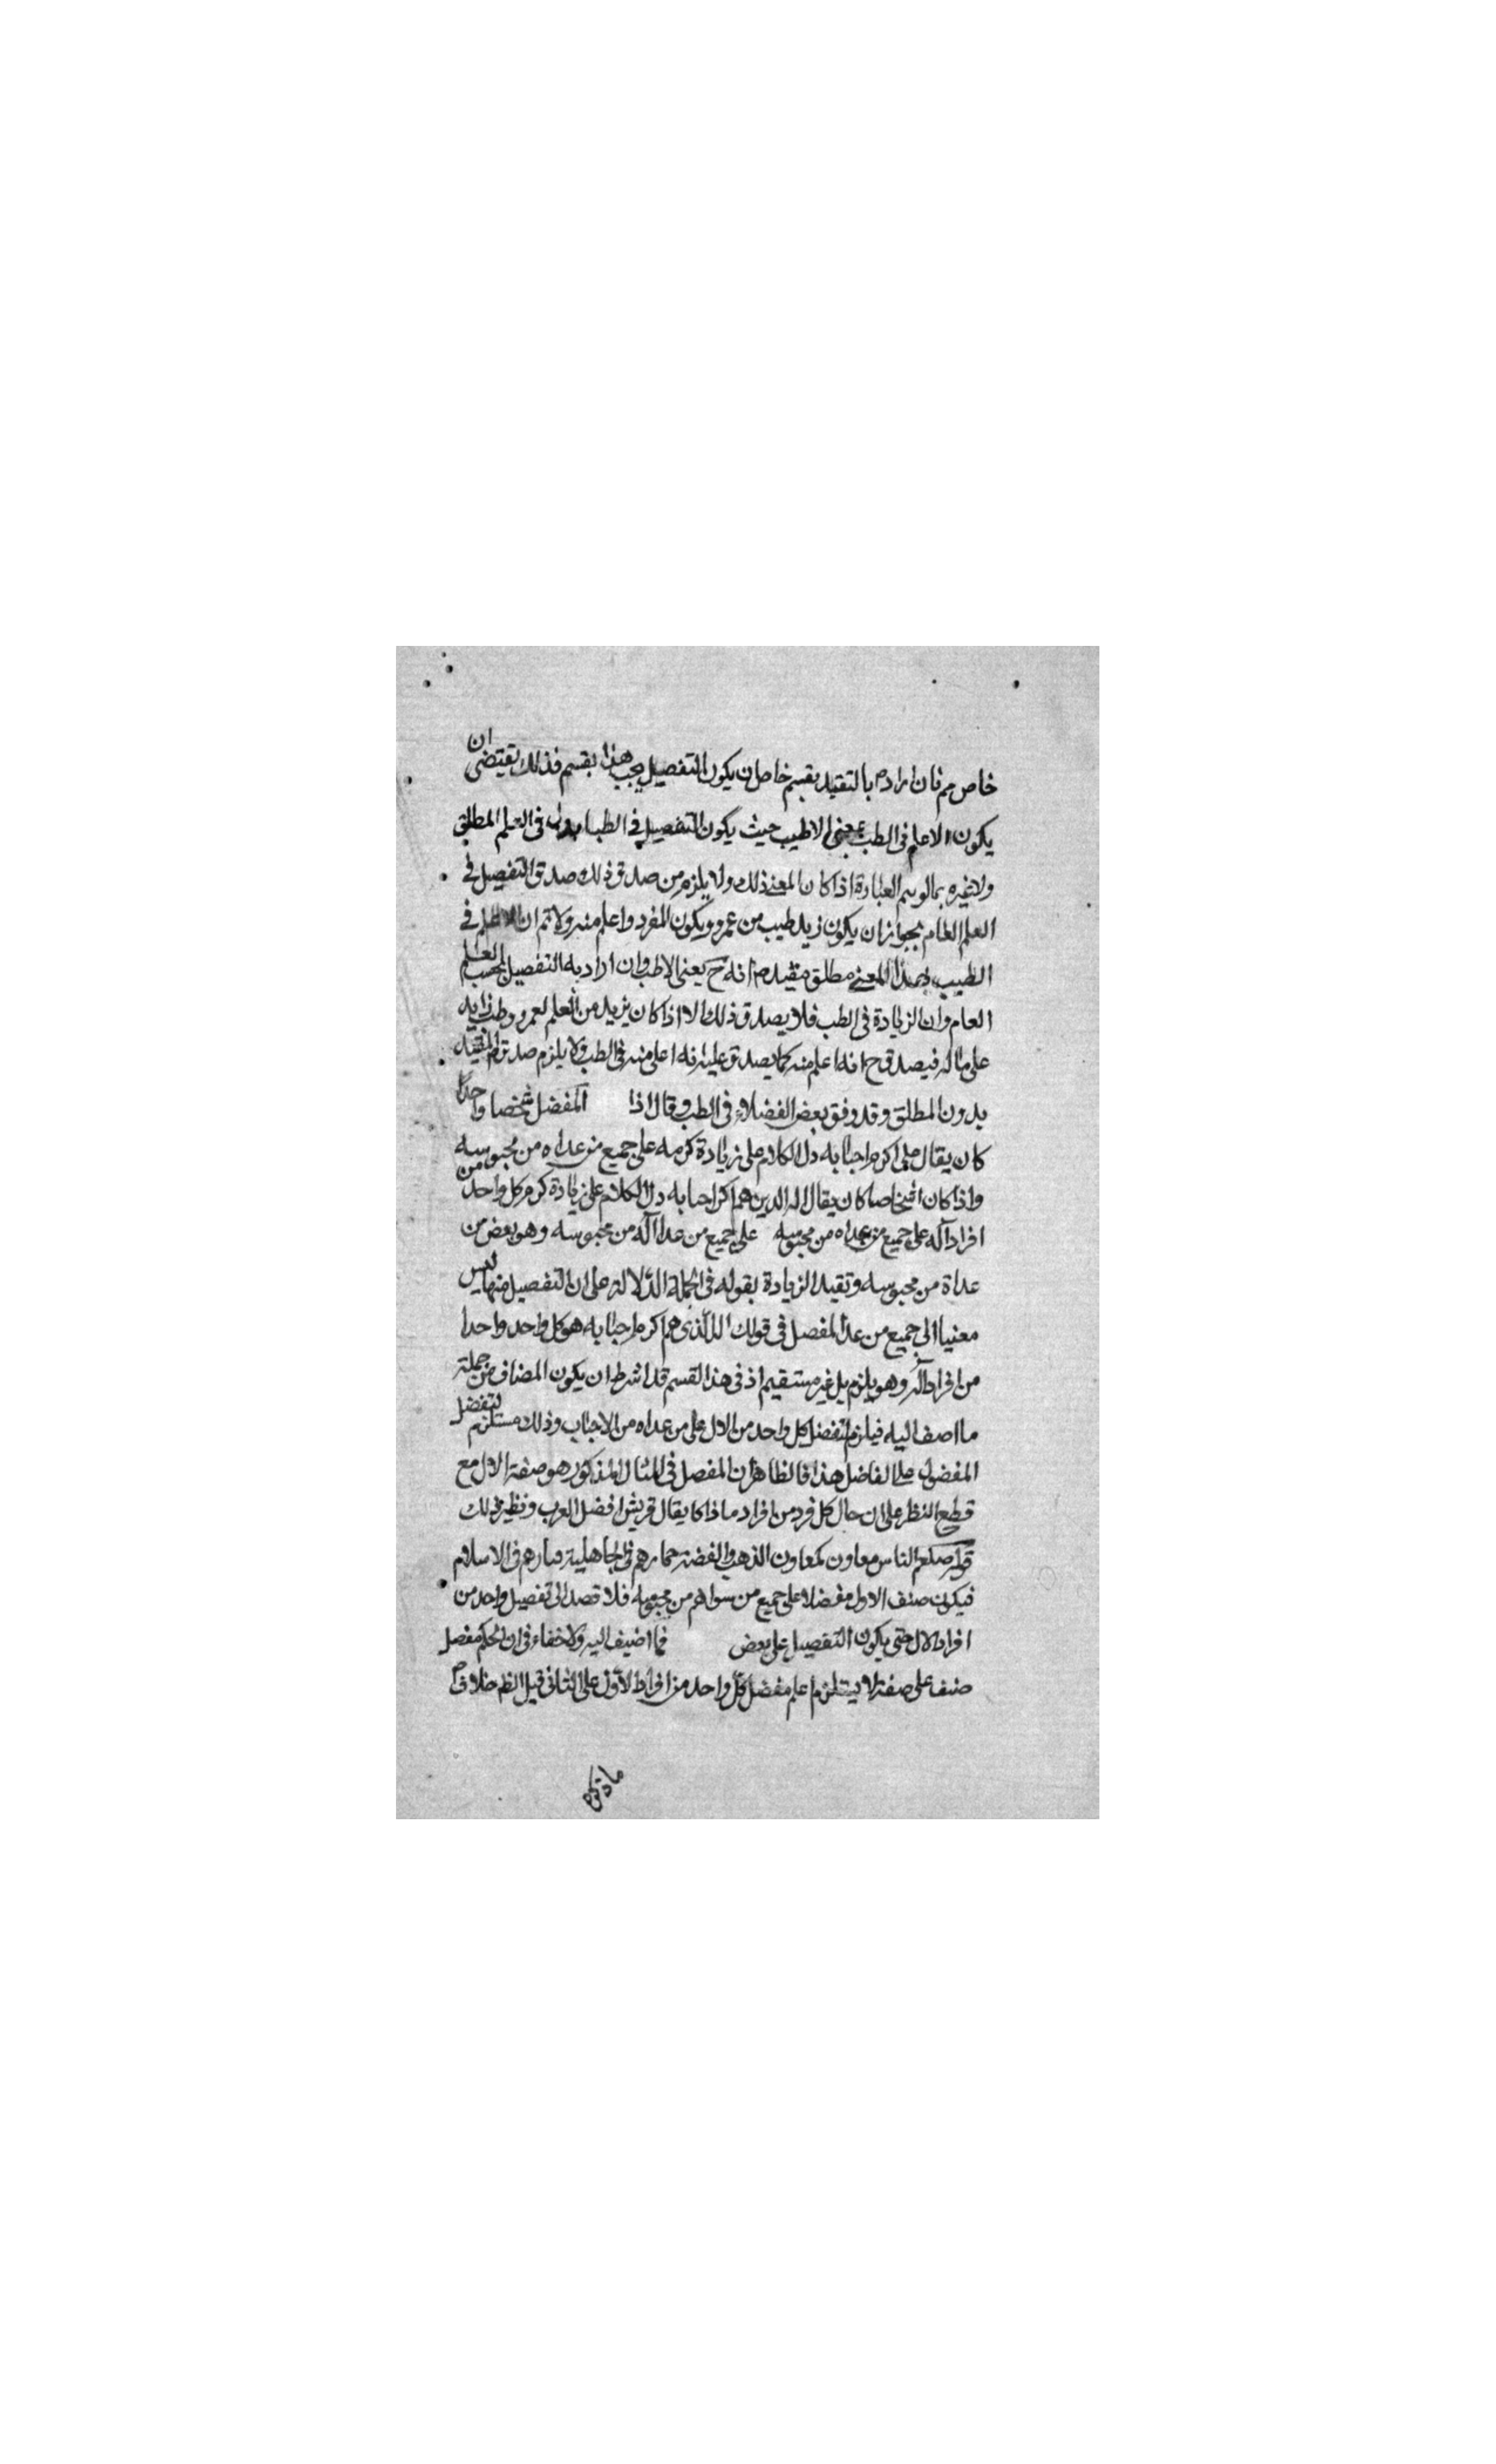 خاص مم فان اراده بالتقيد بقسم خاص ان يكون التفصيل بحسب هذا بقسم فذلك تقيتضى ان
يكون الاعلم فى الطب بمعنى الاطيب حيث يكون التفصيل فى الطب فى العلم المطلق
ولاغيره العبارة اذا كان المعنے ذلك ولا يلزم من صدق ذلك صدق التفصيل فے
العلم العام بجواز ان يكون زيد طيب من عمرو ويكون المفرد واعلم منه ولا تم ان الاعلم فے
الطيب بهذا المعنے مطلق مقيد انه ح يعنى الاطب وان اراد به التفصيل بحسب العلم
العام وان الزيادة فى الطب فلا يصدق ذلك الا اذا كان يزيد من العلم لعمرو وطب زايد
على ماله فيصدق ح انه اعلم منه كما يصدق عليه انه اعلى منه فى الطب ولا يلزم صدق المقيد
بدون المطلق وقد وفق بعض الفضلاء فى الطب وقال اذا المفضل شخصا واحدا
كان يقال على اكرم احبابه دل الكلام على زيادة كرمه على جميع من عداه من محبوسه
واذا كان اشخاصا كان يقال اله الدين هم اكرا حبابه دل الكلام على زيادة كرم كل واحد من
افراد آله على جميع من عداه من محبوسه على جميع من عدا آله من محبوسه وهو بعض من
عداة من محبوسه وتقيد الزيادة بقوله فى الجملة الدلالة على ان التفصيل منها ليس
معنيا الى جميع من عدا المفصل فى قولك الذى هم اكرم احبابه هو كل واحد واحدا
من افراد آله وهو يلزم بل غير مستقيم اذ فى هذا القسم قد اشرط ان يكون المضاف من جملة
ما اصف اليه فيلزم التفضل كل واحد من الال على من عداه من الاحباب وذلك مستلزم لتفضل
المفضول على الفاضل هذا فالظاهر ان المفصل فى المثال المذكور هو صفة الال مع
قطع النظر على ان حال كل فرد من افراد ماذا كا يقال قريش افضل العرب ونظير ذلك
قوله صلعم الناس معاون كمعاون الذهب والفضة خيارهم فى الجاهلية خيارهم فى الاسلام
فيكون صنف الاول مفضلا على جميع من سواهم من محبوبه فلا قصد الى تفصيل واحد من
افراد الال حتى يكون التفصيل على بعض فما اضيف اليه ولا خفاء فى ان الحكم مفصل
صنف على صفة لا يستلزم اعلم مفضل كل واحد من افراط الاول على الثانى قيل الظم خلاف
ما ذكره